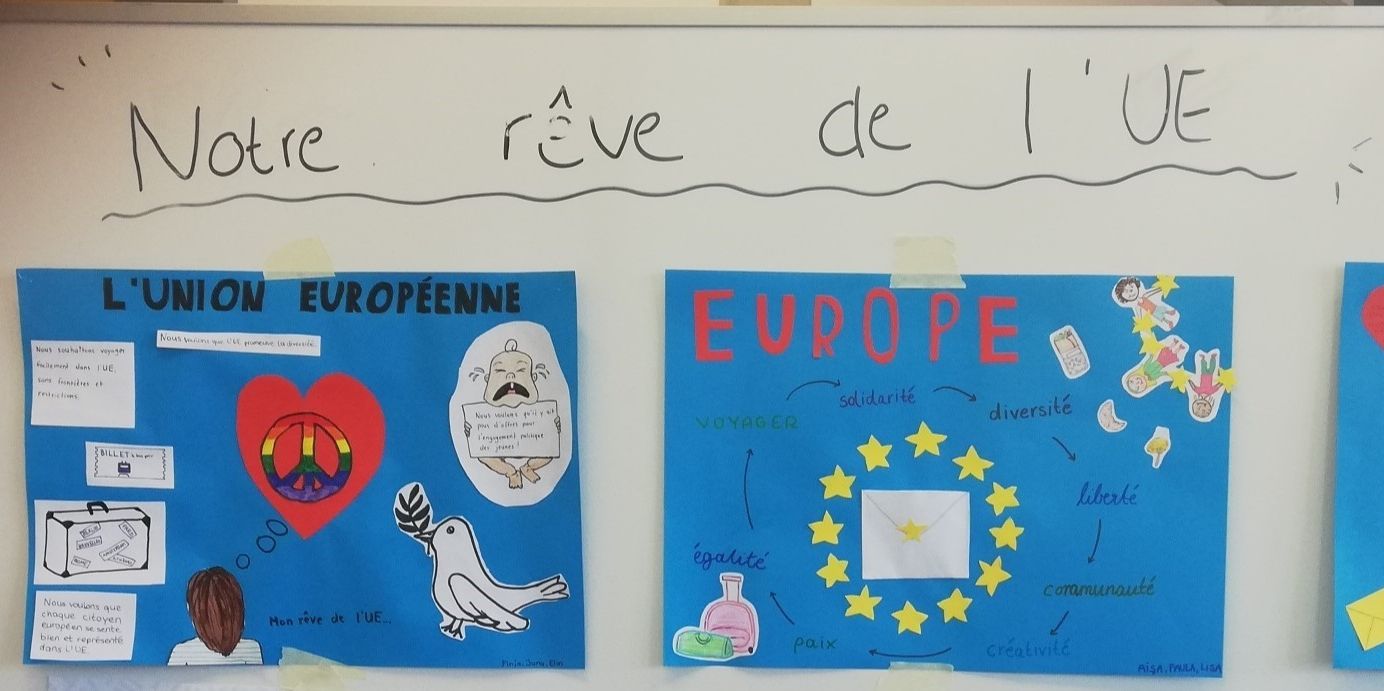 Notre rêve de l'UE
L'UNION EUROPÉENNE
Nous souhaitons voyager
facilement dans l'UE,
sans frontières et
restrictions.
Nous voulons que l'UE promeuve la diversité.
BILLET
Nous voulons qu'il y ait
plus d'offres pour
l'engagement politique
des jeunes!
Nous voulons que
chaque citoyen
européen se sente
bien et représenté
dans L'UE.
Mon rêve de l'UE...
EUROPE
solidarité
diversité
liberté
communauté
créativité
paix
égalité
VOYAGER
AişA, PAULA, LISA